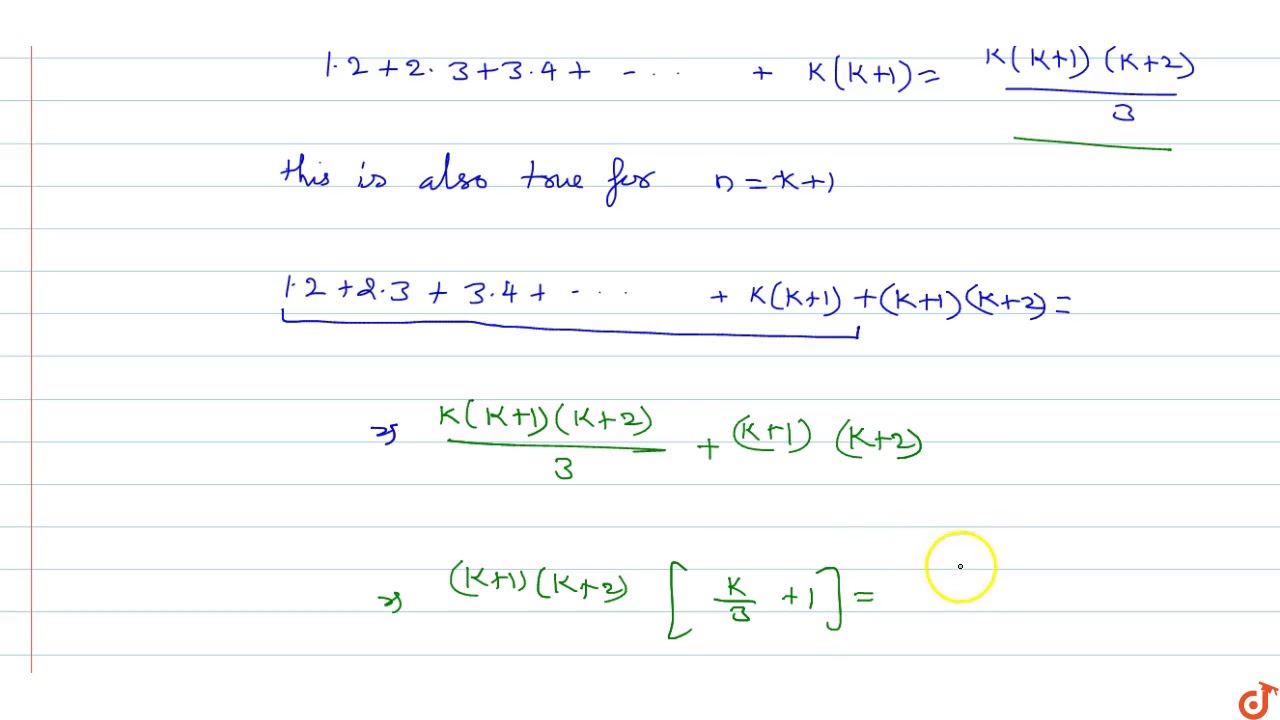 1·2 + 2·3 + 3·4 + - - · · + K(K+1) = K(K+1)(K+2)/3
this is also true for n = K+1
1·2 + 2·3 + 3·4 + - · · · + K(K+1) + (K+1)(K+2) =
⇒ K(K+1)(K+2)/3 + (K+1) (K+2)
⇒ (K+1)(K+2) [K/3 + 1] =